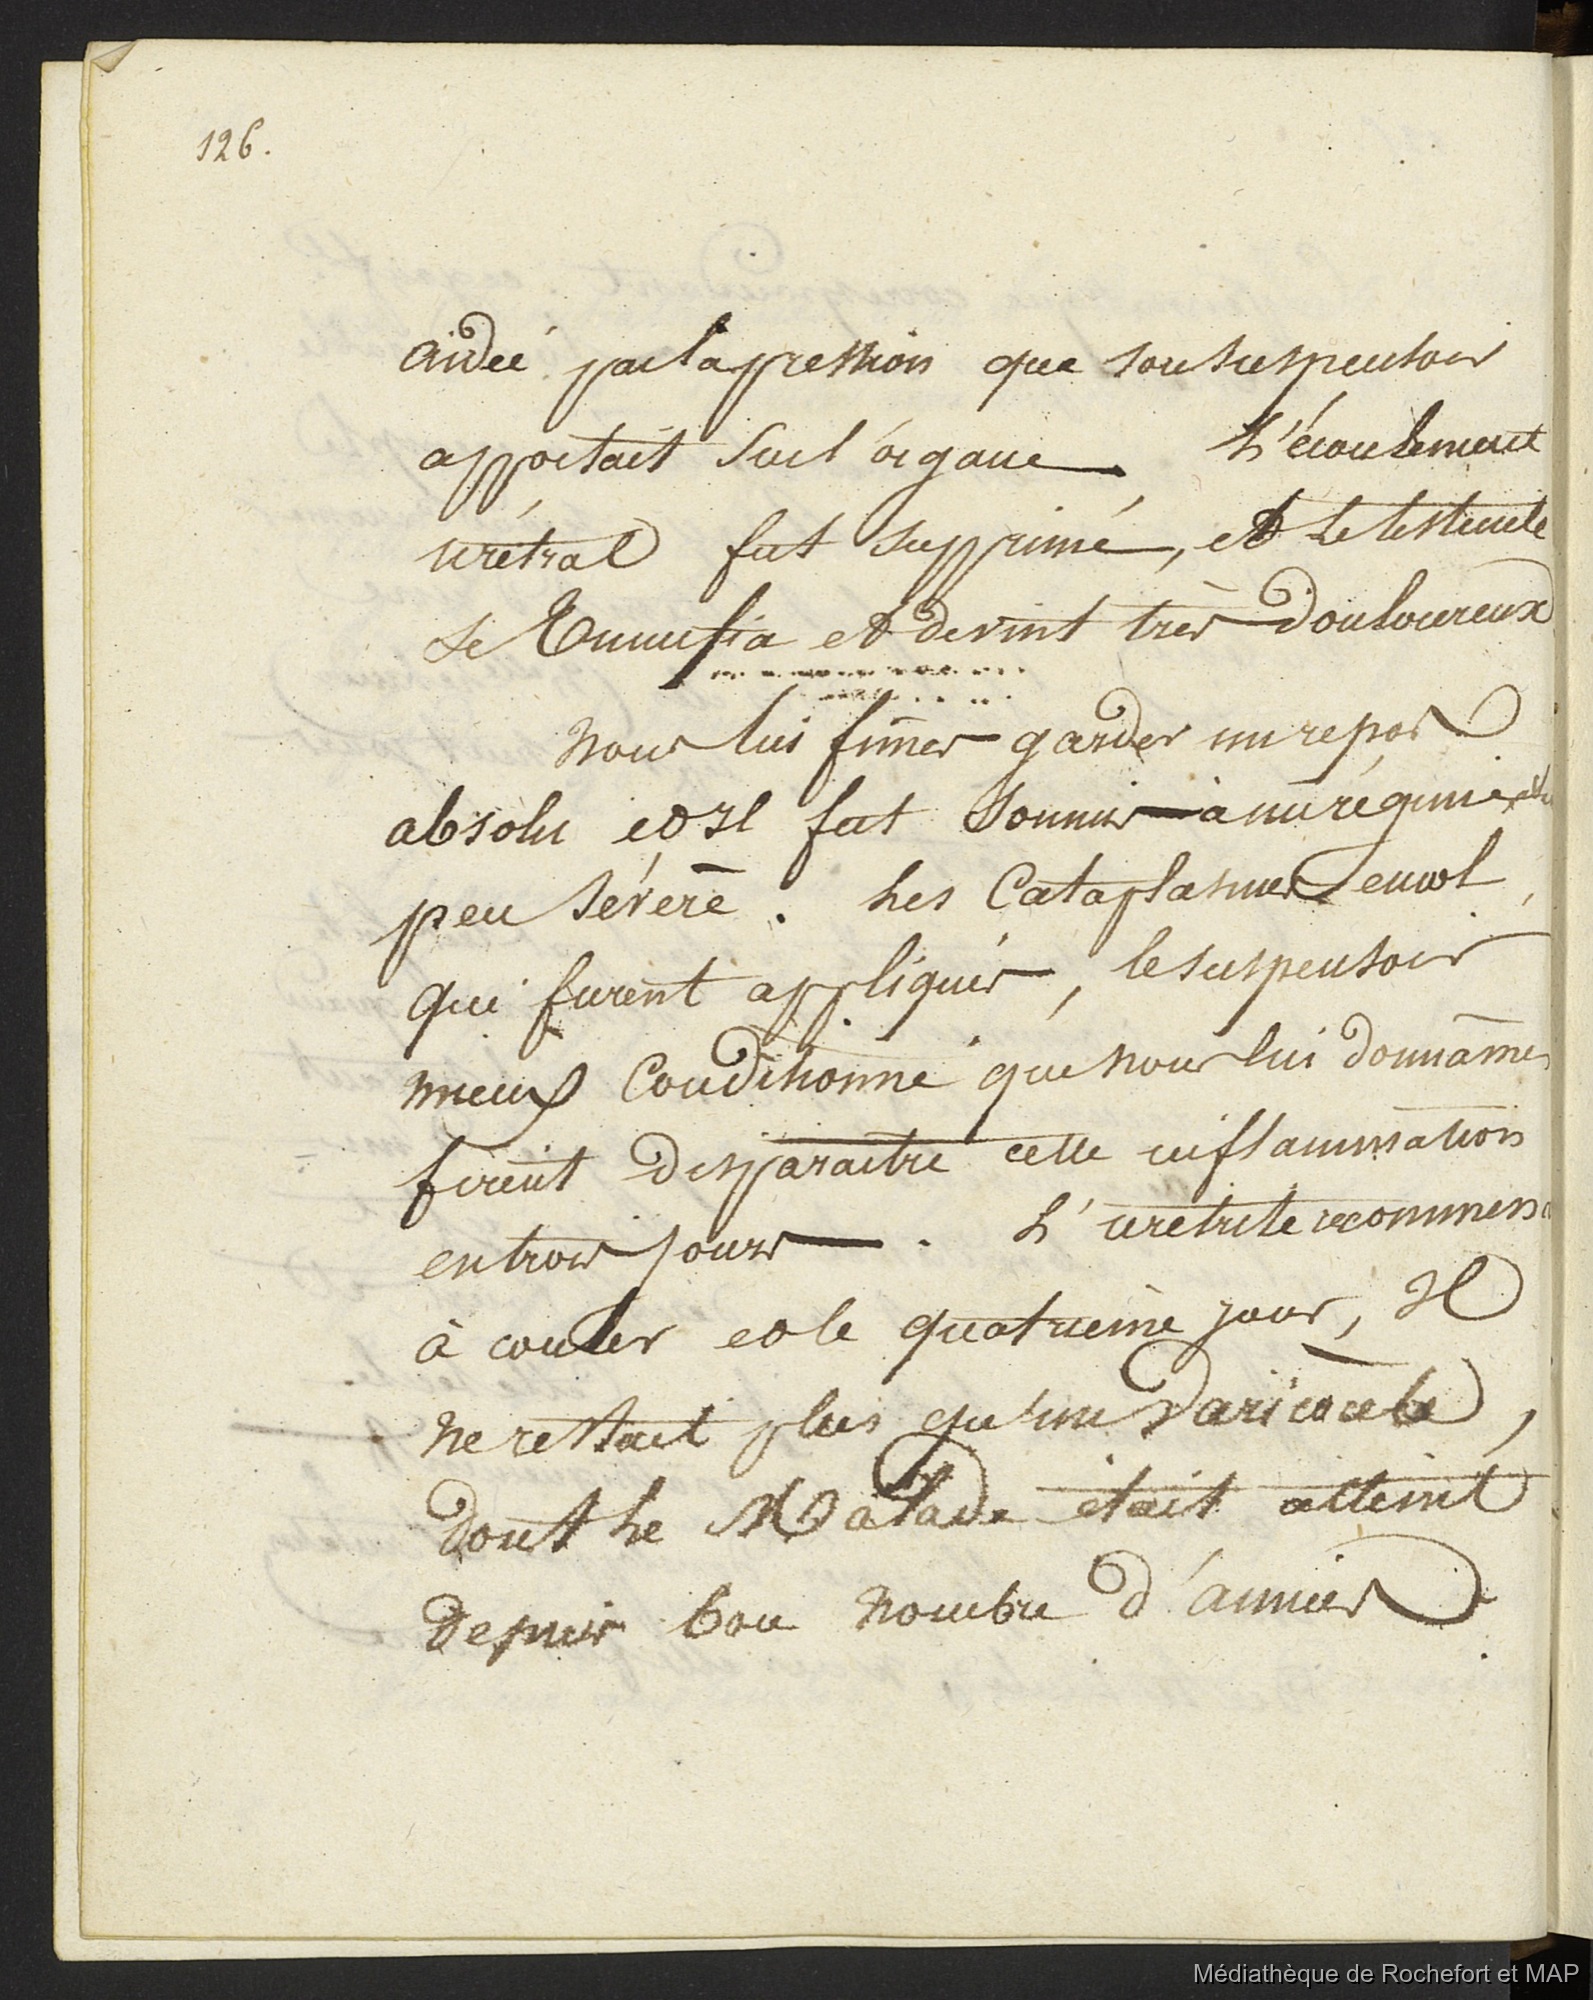 126.
aidée par la pression que son suspensoir
apportait sur l'organe. L'écoulement
urétral fut supprimé, et le testicule
se tumefia et devint très douloureux
Nous lui fimes garder un repos
absolu et il fut soumis à un régime
peu sévère. Les Cataplasmes emol.
qui furent appliqués, le suspensoir
mieux Conditionné que nous lui donnâmes
firent disparaitre cette inflammation
en trois jours. L'uretrite recommença
à couler et le quatrième jour, Il
ne restait plus qu'une Varicocèle,
dont le Malade était atteint
depuis bon nombre d'années.
Médiathèque de Rochefort et MAP